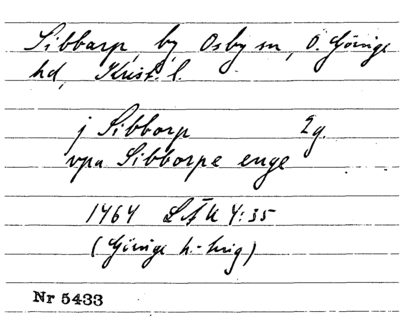 Sibbarp, by, Osby sn, Ö. Göinge
hd, Krist. l.
j Sibborp 2g.
vpa Sibborpe enge
1464 LÅU 4:35
(Göinge h:-brig)
Nr 5433